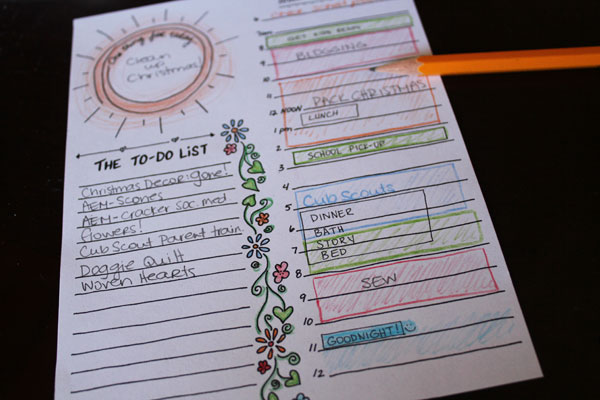 One thing for today
Clean
up
Christmas!
THE TO-DO LIST
Christmas Decor: gone!
AEM-Scones
AEM-cracker soc. med
flowers!
Cub Scout Parent train.
Doggie Quilt
Woven Hearts
7am
GET KIDS READY
8
BLOGGING
9
10
11
PACK CHRISTMAS
12 NOON
LUNCH
1 pm
2
SCHOOL PICK-UP
3
4
Cub Scouts
5
DINNER
6
BATH
STORY
7
BED
8
SEW
9
10
11
GOODNIGHT!
12